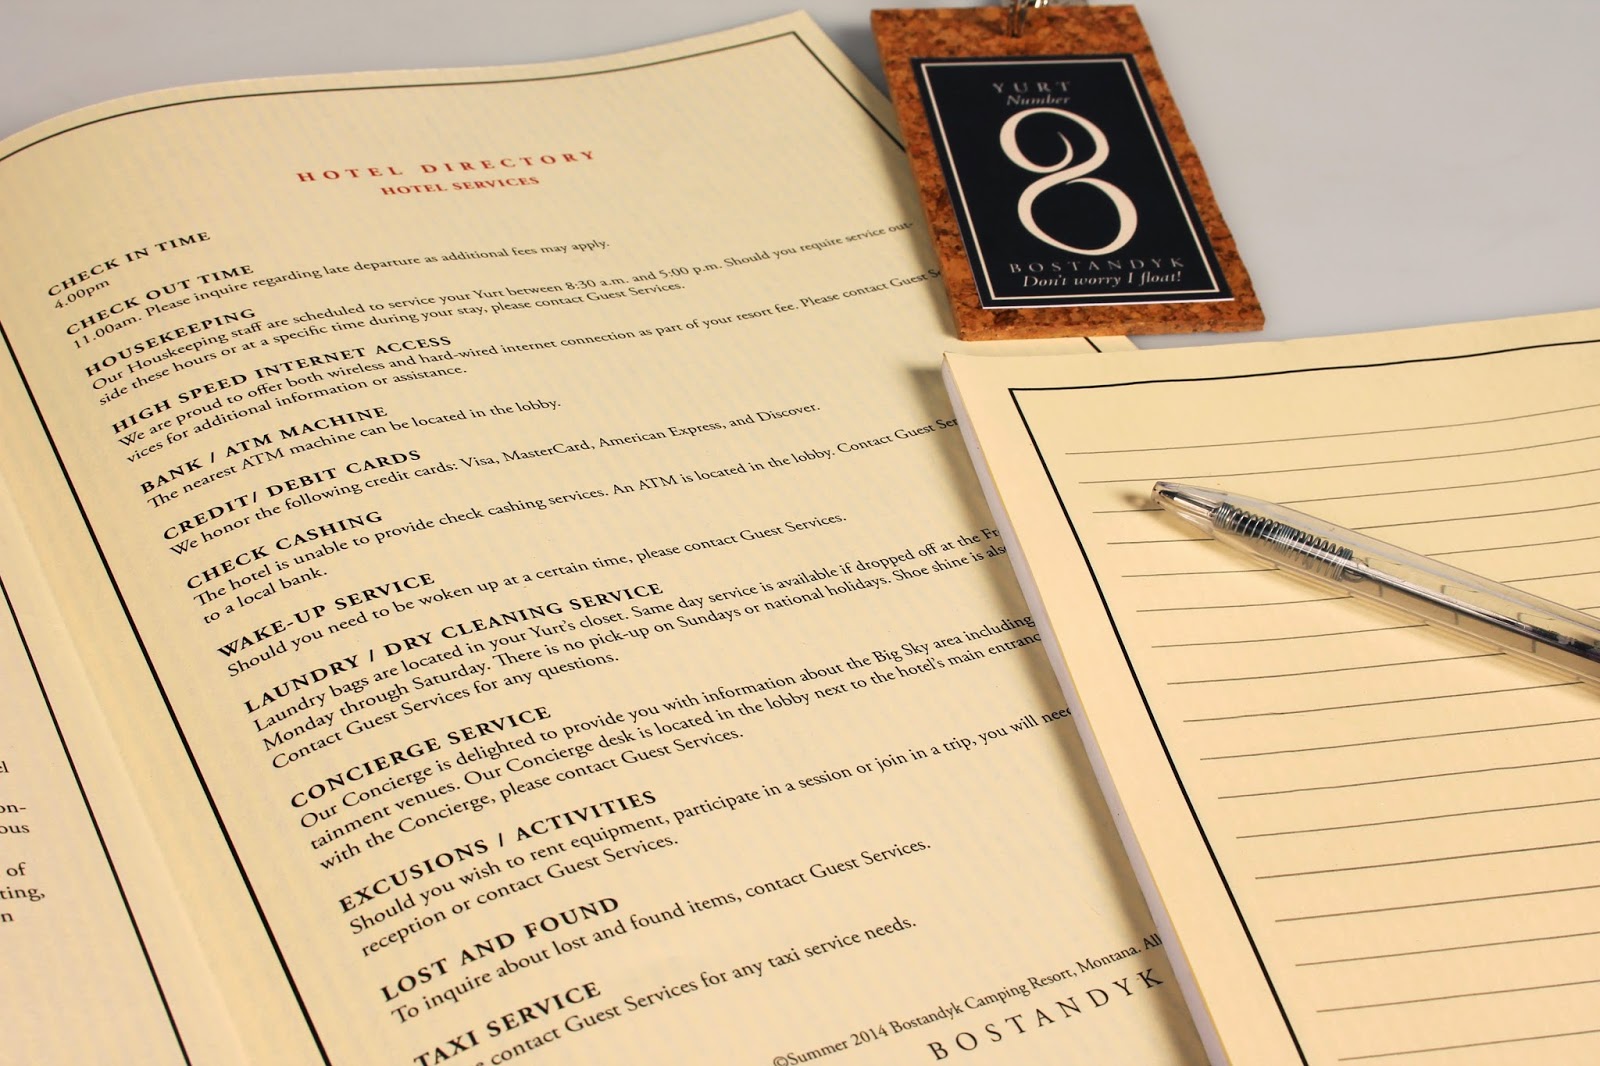 HOTEL DIRECTORY
HOTEL SERVICES
CHECK IN TIME
4.00pm
CHECK OUT TIME
11.00am. Please inquire regarding late departure as additional fees may apply.
HOUSEKEEPING
Our Houskeeping staff are scheduled to service your Yurt between 8:30 a.m. and 5:00 p.m. Should you require service out-
side these hours or at a specific time during your stay, please contact Guest Services.
HIGH SPEED INTERNET ACCESS
We are proud to offer both wireless and hard-wired internet connection as part of your resort fee. Please contact Guest Se
vices for additional information or assistance.
BANK / ATM MACHINE
The nearest ATM machine can be located in the lobby.
CREDIT/ DEBIT CARDS
We honor the following credit cards: Visa, MasterCard, American Express, and Discover.
CHECK CASHING
The hotel is unable to provide check cashing services. An ATM is located in the lobby. Contact Guest Ser
to a local bank.
WAKE-UP SERVICE
Should you need to be woken up at a certain time, please contact Guest Services.
LAUNDRY / DRY CLEANING SERVICE
Laundry bags are located in your Yurt's closet. Same day service is available if dropped off at the Fr
Monday through Saturday. There is no pick-up on Sundays or national holidays. Shoe shine is als
Contact Guest Services for any questions.
CONCIERGE SERVICE
Our Concierge is delighted to provide you with information about the Big Sky area including
tainment venues. Our Concierge desk is located in the lobby next to the hotel's main entranc
with the Concierge, please contact Guest Services.
EXCUSIONS / ACTIVITIES
Should you wish to rent equipment, participate in a session or join in a trip, you will need
reception or contact Guest Services.
LOST AND FOUND
To inquire about lost and found items, contact Guest Services.
TAXI SERVICE
contact Guest Services for any taxi service needs.
©Summer 2014 Bostandyk Camping Resort, Montana. All
BOSTANDYK
YURT
Number
8
BOSTANDYK
Don't worry I float!
on-
ous
of
ting,
n